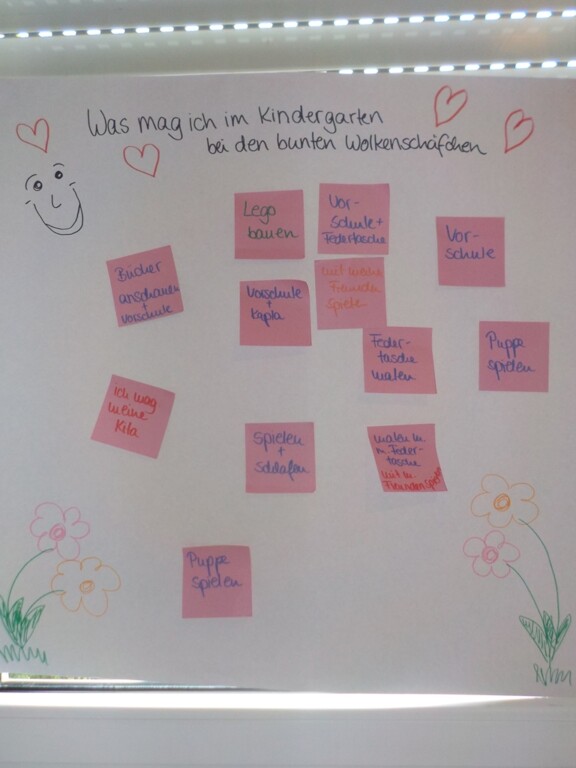 Was mag ich im Kindergarten
bei den bunten Wolkenschäfchen
Lego
bauen
Vor-
schule +
Federtasche
Vor-
schule
Bücher
anschauen
+
Vorschule
Vorschule
+
Kapla
mit meine
Freunden
spielen
Feder-
tasche
malen
Puppe
spielen
ich mag
meine
Kita
spielen
+
schlafen
malen m.
m. Feder-
tasche
mit m.
Freunden spielen
Puppe
spielen